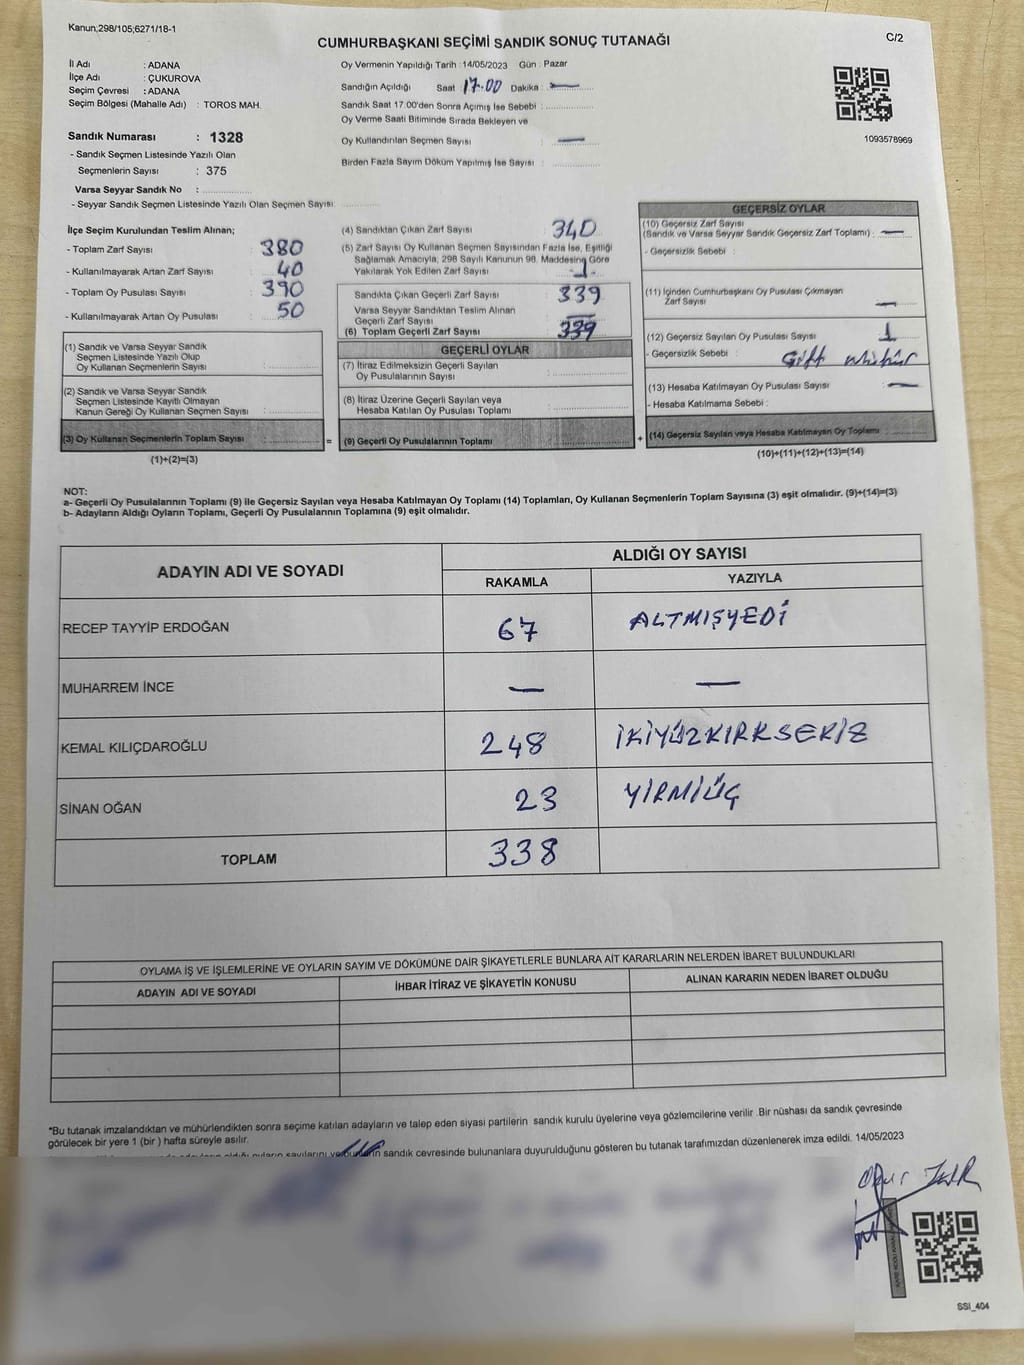 Kanun;298/105;6271/18-1
CUMHURBAŞKANI SEÇİMİ SANDIK SONUÇ TUTANAĞI
C/2
İl Adı : ADANA
İlçe Adı : ÇUKUROVA
Seçim Çevresi : ADANA
Seçim Bölgesi (Mahalle Adı) : TOROS MAH.
Sandık Numarası : 1328
- Sandık Seçmen Listesinde Yazılı Olan
Seçmenlerin Sayısı : 375
Varsa Seyyar Sandık No :
- Seyyar Sandık Seçmen Listesinde Yazılı Olan Seçmen Sayısı:
Oy Vermenin Yapıldığı Tarih : 14/05/2023 Gün : Pazar
Sandığın Açıldığı Saat : 17.00 Dakika : —
Sandık Saat 17.00'den Sonra Açımış İse Sebebi :
Oy Verme Saati Bitiminde Sırada Bekleyen ve
Oy Kullandırılan Seçmen Sayısı : —
Birden Fazla Sayım Döküm Yapılmış İse Sayısı :
1093578969
İlçe Seçim Kurulundan Teslim Alınan;
- Toplam Zarf Sayısı 380
- Kullanılmayarak Artan Zarf Sayısı 40
- Toplam Oy Pusulası Sayısı 390
- Kullanılmayarak Artan Oy Pusulası 50
(1) Sandık ve Varsa Seyyar Sandık
Seçmen Listesinde Yazılı Olup
Oy Kullanan Seçmenlerin Sayısı :
(2) Sandık ve Varsa Seyyar Sandık
Seçmen Listesinde Kayıtlı Olmayan
Kanun Gereği Oy Kullanan Seçmen Sayısı :
(3) Oy Kullanan Seçmenlerin Toplam Sayısı :
(1)+(2)=(3)
(4) Sandıktan Çıkan Zarf Sayısı 340
(5) Zarf Sayısı Oy Kullanan Seçmen Sayısından Fazla İse, Eşitliği
Sağlamak Amacıyla, 298 Sayılı Kanunun 98. Maddesine Göre
Yakılarak Yok Edilen Zarf Sayısı -1-
Sandıkta Çıkan Geçerli Zarf Sayısı 339
Varsa Seyyar Sandıktan Teslim Alınan
Geçerli Zarf Sayısı —
(6) Toplam Geçerli Zarf Sayısı 339
GEÇERLİ OYLAR
(7) İtiraz Edilmeksizin Geçerli Sayılan
Oy Pusulalarının Sayısı :
(8) İtiraz Üzerine Geçerli Sayılan veya
Hesaba Katılan Oy Pusulası Toplamı :
= (9) Geçerli Oy Pusulalarının Toplamı :
GEÇERSİZ OYLAR
(10) Geçersiz Zarf Sayısı
(Sandık ve Varsa Seyyar Sandık Geçersiz Zarf Toplamı) : —
- Geçersizlik Sebebi :
(11) İçinden Cumhurbaşkanı Oy Pusulası Çıkmayan
Zarf Sayısı —
(12) Geçersiz Sayılan Oy Pusulası Sayısı 1
- Geçersizlik Sebebi : Çift mühür
(13) Hesaba Katılmayan Oy Pusulası Sayısı —
- Hesaba Katılmama Sebebi :
+ (14) Geçersiz Sayılan veya Hesaba Katılmayan Oy Toplamı
(10)+(11)+(12)+(13)=(14)
NOT:
a- Geçerli Oy Pusulalarının Toplamı (9) ile Geçersiz Sayılan veya Hesaba Katılmayan Oy Toplamı (14) Toplamları, Oy Kullanan Seçmenlerin Toplam Sayısına (3) eşit olmalıdır. (9)+(14)=(3)
b- Adayların Aldığı Oyların Toplamı, Geçerli Oy Pusulalarının Toplamına (9) eşit olmalıdır.
ADAYIN ADI VE SOYADI
ALDIĞI OY SAYISI
RAKAMLA YAZIYLA
RECEP TAYYİP ERDOĞAN 67 ALTMIŞYEDİ
MUHARREM İNCE — —
KEMAL KILIÇDAROĞLU 248 İKİYÜZKIRKSEKİZ
SİNAN OĞAN 23 YİRMİÜÇ
TOPLAM 338
OYLAMA İŞ VE İŞLEMLERİNE VE OYLARIN SAYIM VE DÖKÜMÜNE DAİR ŞİKAYETLERLE BUNLARA AİT KARARLARIN NELERDEN İBARET BULUNDUKLARI
ADAYIN ADI VE SOYADI İHBAR İTİRAZ VE ŞİKAYETİN KONUSU ALINAN KARARIN NEDEN İBARET OLDUĞU
*Bu tutanak imzalandıktan ve mühürlendikten sonra seçime katılan adayların ve talep eden siyasi partilerin sandık kurulu üyelerine veya gözlemcilerine verilir .Bir nüshası da sandık çevresinde
görülecek bir yere 1 (bir ) hafta süreyle asılır.
oyların sayılarını ve bunların sandık çevresinde bulunanlara duyurulduğunu gösteren bu tutanak tarafımızdan düzenlenerek imza edildi. 14/05/2023
SSI_404